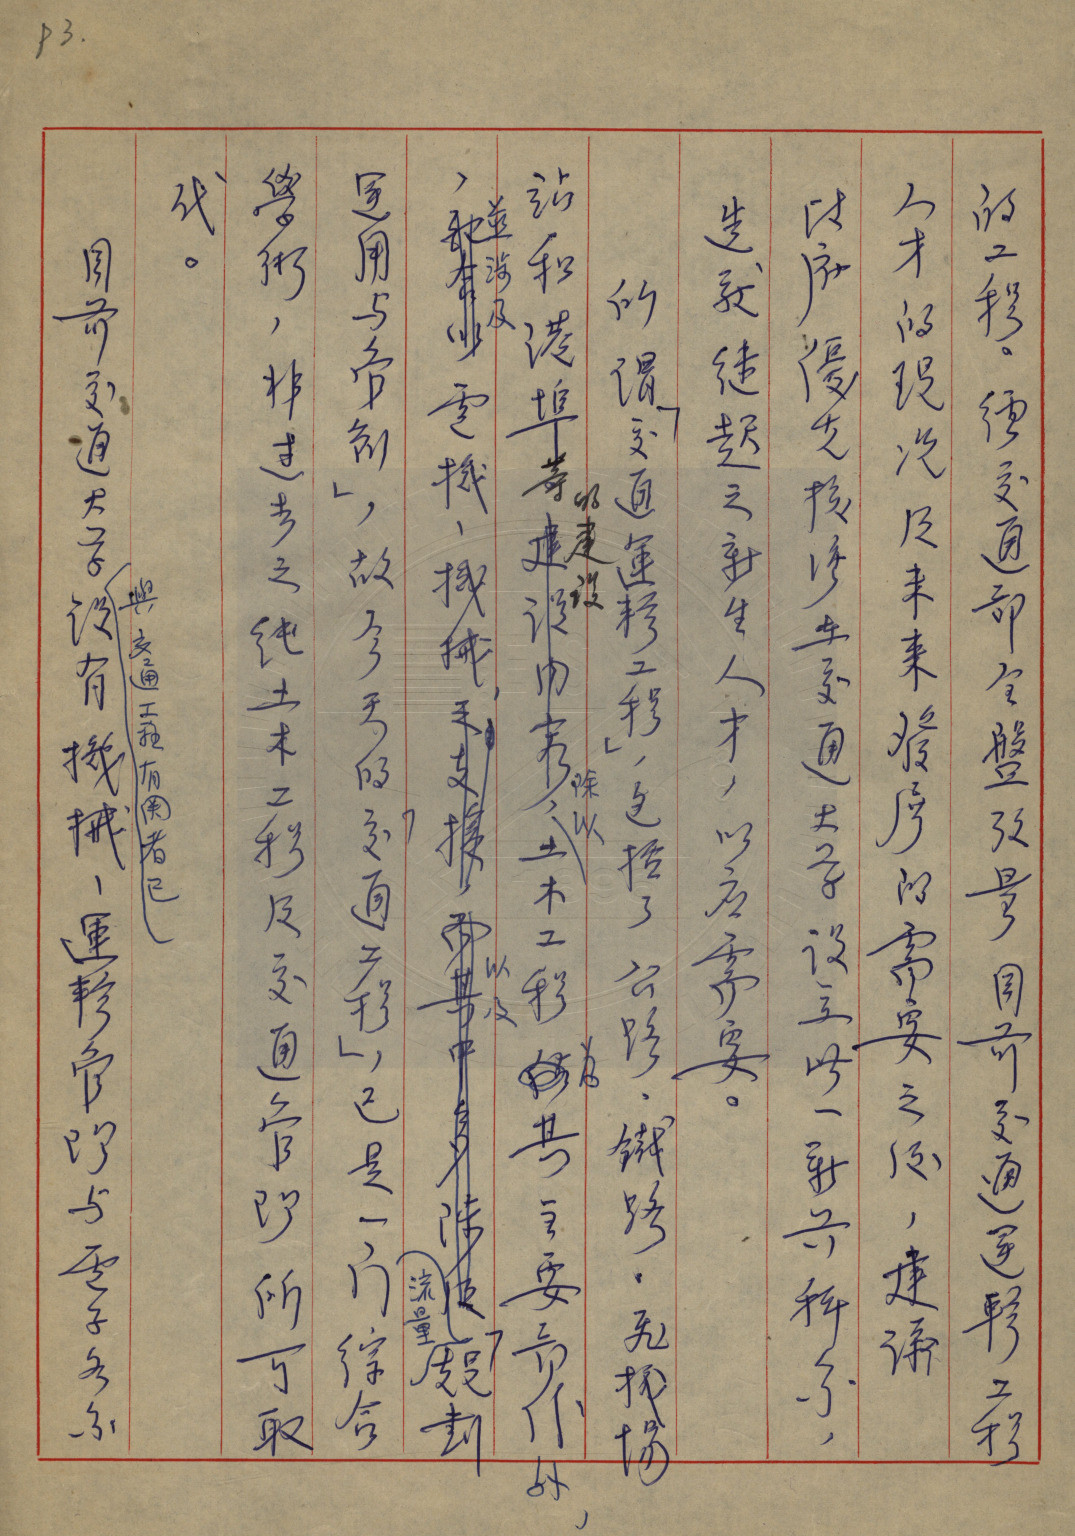 P3.
的工程。經交通部全盤考量目前交通運輸工程
人才的現況及未來發展的需要之後，建議
政府優先核准在交通大學設立此一新興科系，
造就建起之新生人才，以应需要。
所謂「交通運輸工程」，包括了公路、鐵路、飛機場
站和港埠等的建設，除以土木工程為其主要部份外，
，並涉及電機、機械，以及流量「規劃
運用与管制」，故今天的「交通工程」，已是一门综合
學術，非过去之純土木工程及交通管理所可取
代。
目前交通大学设有機械、運輸管理与電子各系
與交通工程有関者已